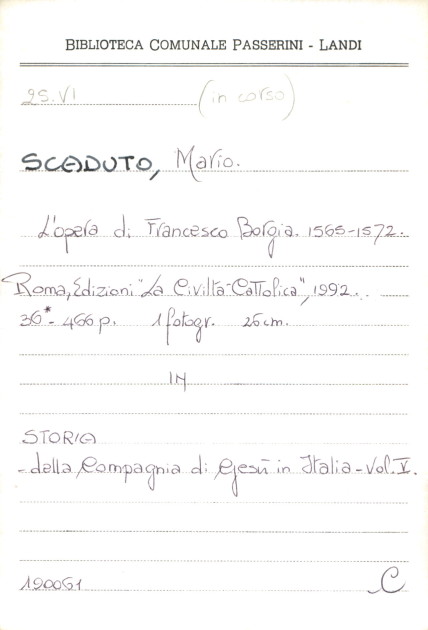 BIBLIOTECA COMUNALE PASSERINI - LANDI
25.VI (in corso)
SCADUTO, Mario.
L'opera di Francesco Borgia. 1565-1572.
Roma, Edizioni "La Civiltà Cattolica", 1992.
36*- 466 p. 1 fotogr. 26 cm.
IN
STORIA
- della Compagnia di Gesù in Italia - Vol. V.
190061 C